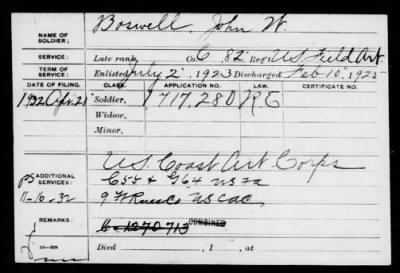 NAME OF SOLDIER: Boswell, John W.
SERVICE: Late rank, Co. C 82 Reg't U.S. Field Art.
TERM OF SERVICE: Enlisted July 2, 1923 Discharged Feb 10, 1925
DATE OF FILING. CLASS. APPLICATION NO. LAW. CERTIFICATE NO.
1932 Apr. 21 Soldier, 1717,280
Widow,
Minor,
U.S. Coast Art Corps
ADDITIONAL SERVICES: C 55 & G 64
11-16-32 USCAC
REMARKS: C-1270713 COMBINED
Died , 1 , at